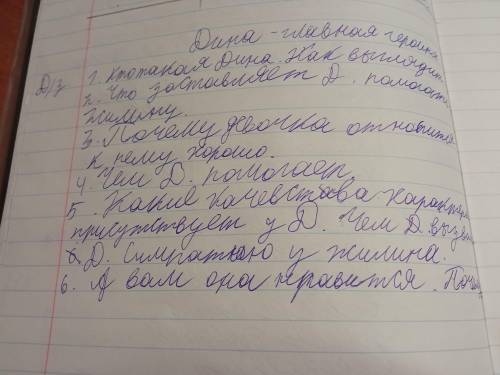 Дина - главная героиня
Д/з 1. Кто такая Дина. Как выглядит
2. Что заставляет Д. помогат
Жилину.
3. Почему девочка относится
к нему хорошо.
4. Чем Д. помогает.
5. Какие качевства характера
присутствует у Д. Чем Д. вызв
Д. симпатию у жилина.
6. А вам она нравится. Почему